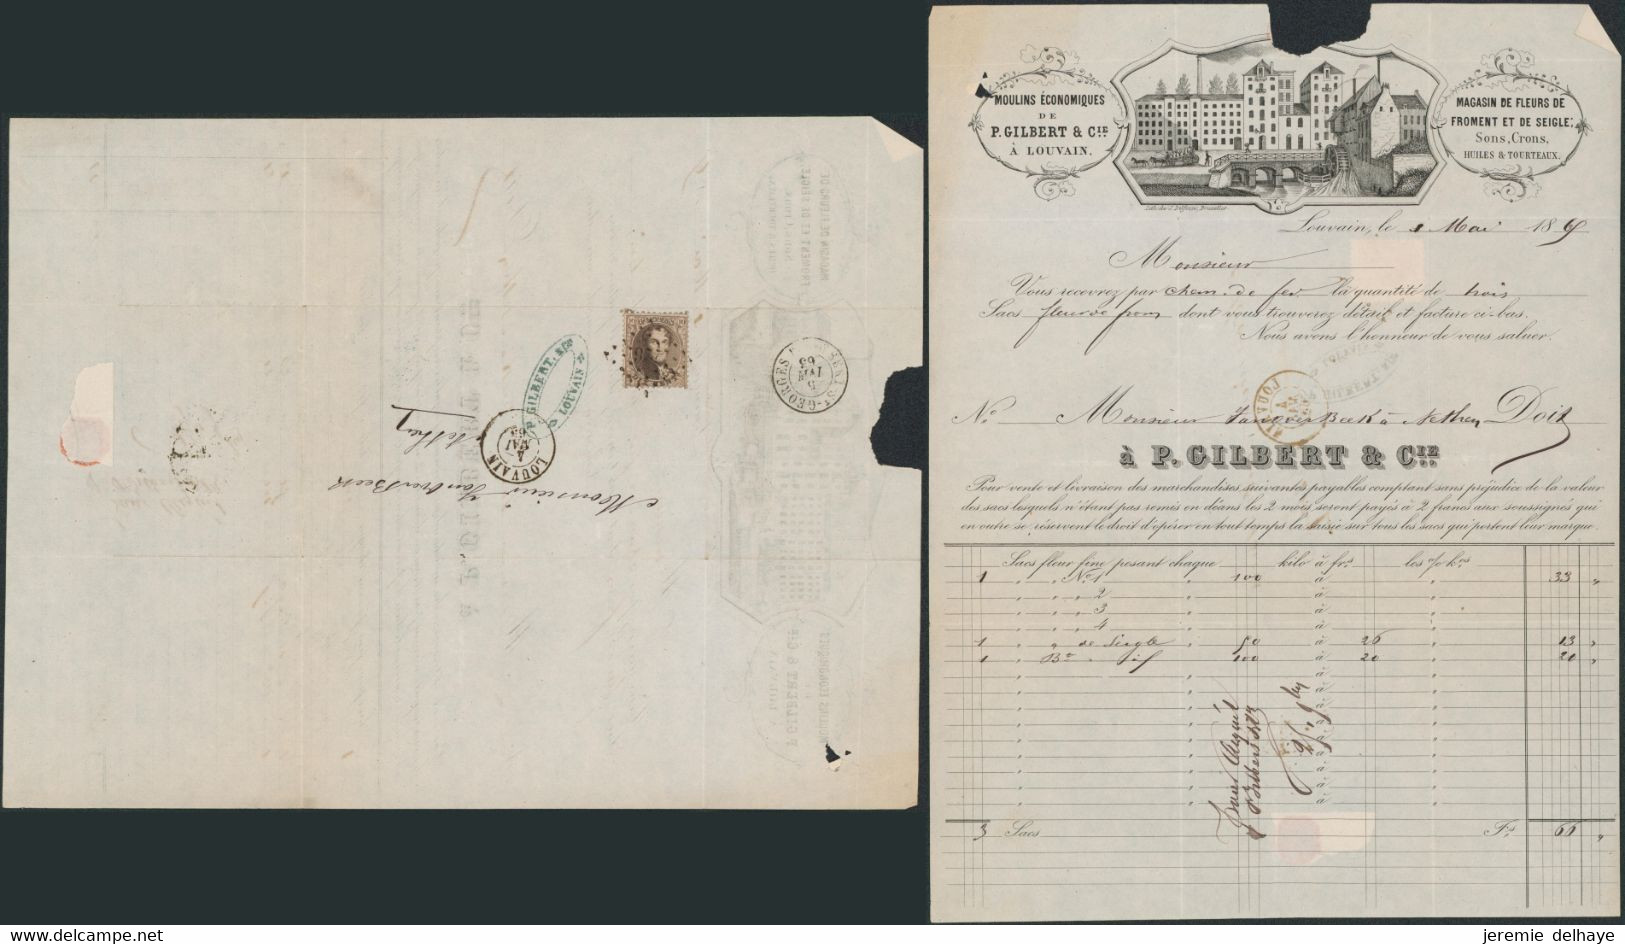 P. GILBERT. & Cie
LOUVAIN
LOUVAIN
4
MAI
65
GEORGES
5
MAI
65
Monsieur VanOverBeek
à P. GILBERT & Cie
MOULINS ÉCONOMIQUES
DE
P. GILBERT & CIE
À LOUVAIN.
MAGASIN DE FLEURS DE
FROMENT ET DE SEIGLE:
Sons, Crons,
HUILES & TOURTEAUX.
Louvain, le 1 Mai 186
Monsieur
Vous recevrez par chem. de fer la quantité de trois
Sacs fleur de from dont vous trouverez détail et facture ci-bas.
Nous avons l'honneur de vous saluer.
LOUVAIN
No Monsieur Vanover Beek à Nethen Doit
à P. GILBERT & CIE
Pour vente et livraison des marchandises suivantes payables comptant sans préjudice de la valeur
des sacs lesquels n'étant pas remis en déans les 2 mois seront payés à 2 francs aux soussignés qui
en outre se réservent le droit d'opérer en tout temps la saisie sur tous les sacs qui portent leur marque.
Sacs fleur fine pesant chaque kilo à frs les % kos
1 " " No 1 " 100 à " 33 "
" " " 2 " à "
" " " 3 " à "
" " " 4 " à "
1 " " de Seigle " 50 à 26 " 13 "
1 " 100 à 20 " 20 "
3 Sacs Fs 66 "
jeremie delhaye